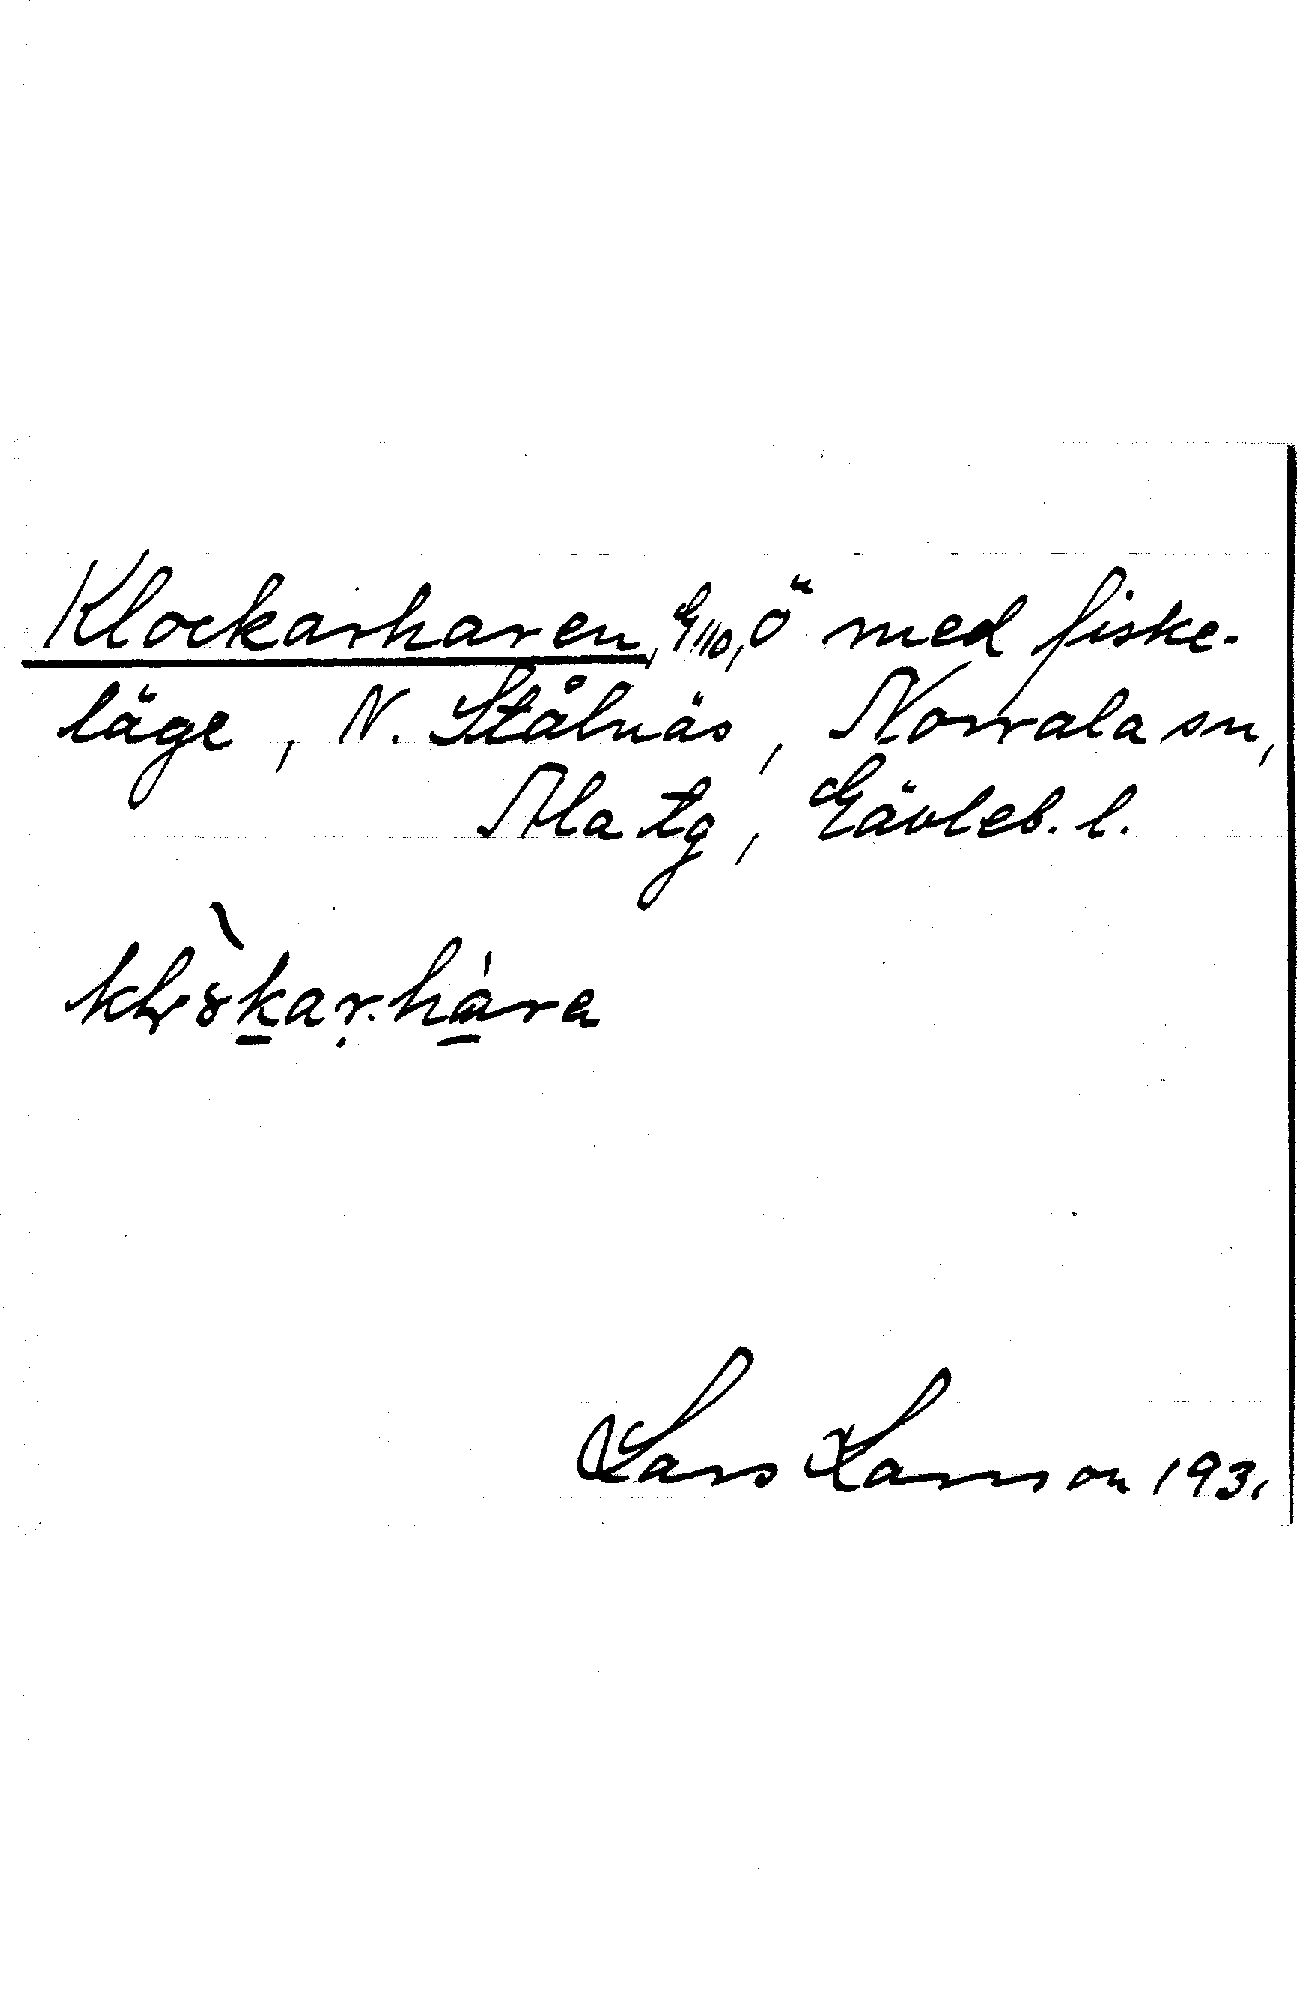 Klockarharen, G110, ö med fiske-
läge, N. Stålnäs, Norrala sn,
Ala tg, Gävleb. l.
Lars Larsson 1931